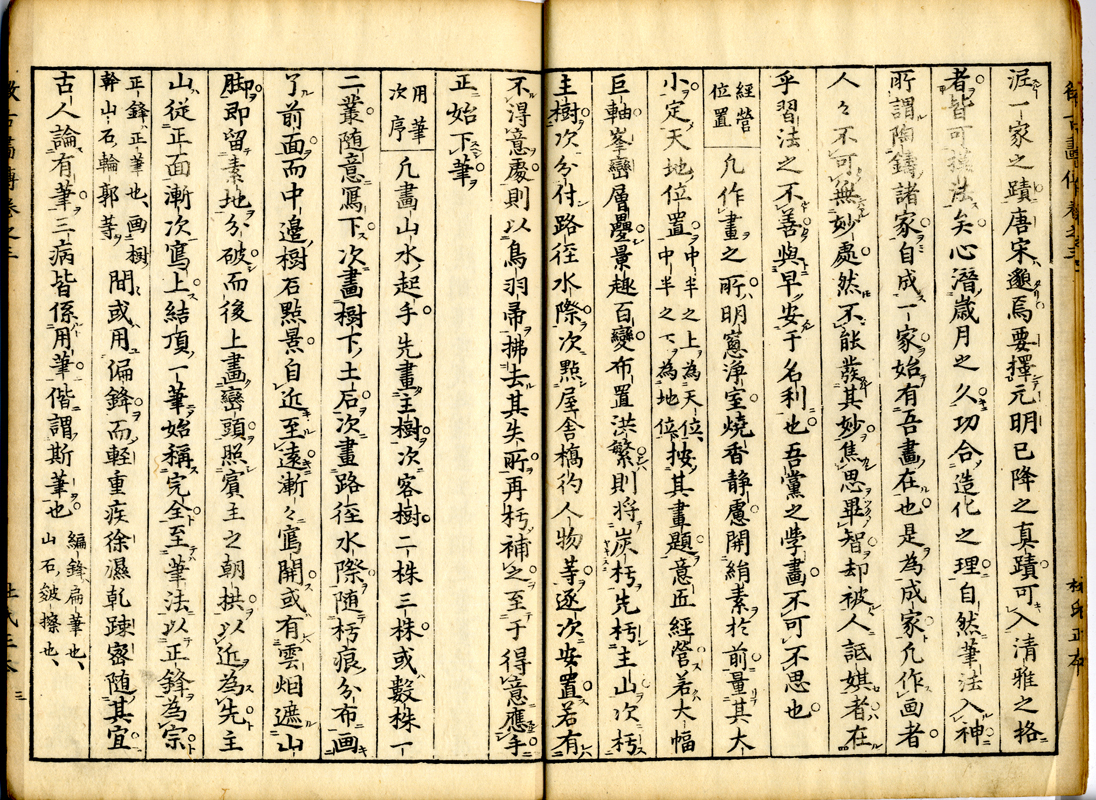 泥一家之蹟唐宋邈焉要擇元明已降之真蹟可入清雅之格
者皆可模法矣心潛歳月之久功合造化之理自然筆法入神
所謂陶鋳諸家自成一家始有吾畫在也是為成家凢作画者
人々不可無妙處然不能發其妙焦思畢智却被人詆娸者在
乎習法之不善與早安于名利也吾黨之學畫不可不思也
經營位置 凢作畫之所明窓淨室燒香静慮開絹素於前量其大
小定天地位置中半之上為天位中半之下為地位按其畫題意匠經營若大幅
巨軸峯巒層疊景趣百變布置洪繁則将炭朽先朽主山次朽
主樹次分付路徑水際次點屋舎橋彴人物等逐次安置若有
不得意處則以鳥羽帚拂去其失所再朽補之至于得意應手
正始下筆
用筆次序 凢畫山水起手先畫主樹次客樹二株三株或數株一
二叢随意寫下次畫樹下土石次畫路徑水際随朽痕分布画
了前面而中邉樹石點景自近至遠漸々寫開或有雲烟遮山
脚即留素地分破而後上畫巒頭照賓主之朝拱以近為先主
山從正面漸次寫上結頂一筆始稱完全至筆法以正鋒為宗
正鋒正筆也画樹幹山石輪郭等 間或用偏鋒而軽重疾徐濕乹疎宻随其宜
古人論有筆三病皆係用筆偕謂斯筆也 編鋒扁筆也山石皴擦也